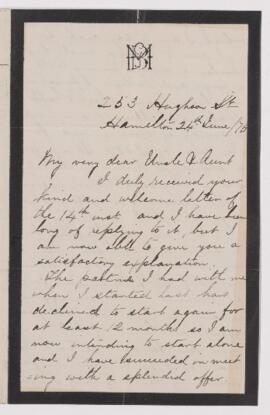 253 Hughson St
Hamilton 24th June /78
My very dear Uncle & Aunt
I duly received your
kind and welcome letter of
the 14th inst. and I have been
long of replying to it, but I
am now able to give you a
satisfactory explanation.
The partner I had with me
when I started last had
declined to start again for
at least 12 months so I am
now intending to start alone
and I have succeeded in meet
ing with a splendid offer